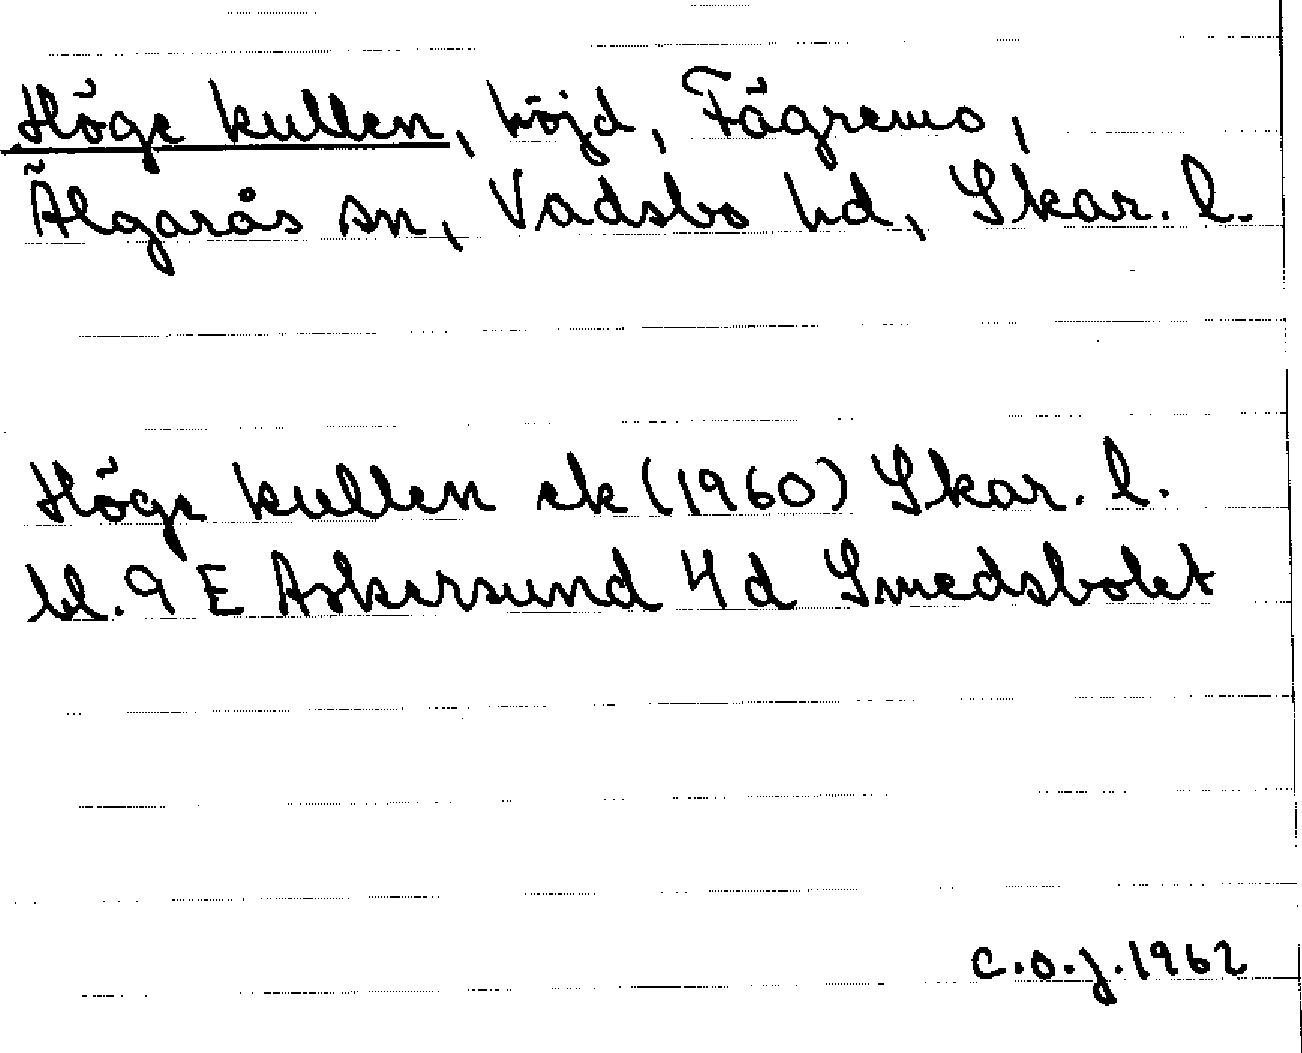 Höge kullen, höjd, Fägremo,
Älgarås sn, Vadsbo hd, Skar. l.
Höge kullen ek (1960) Skar. l.
bl. 9 E Askersund 4 d Smedsbolet
C.O.J. 1962